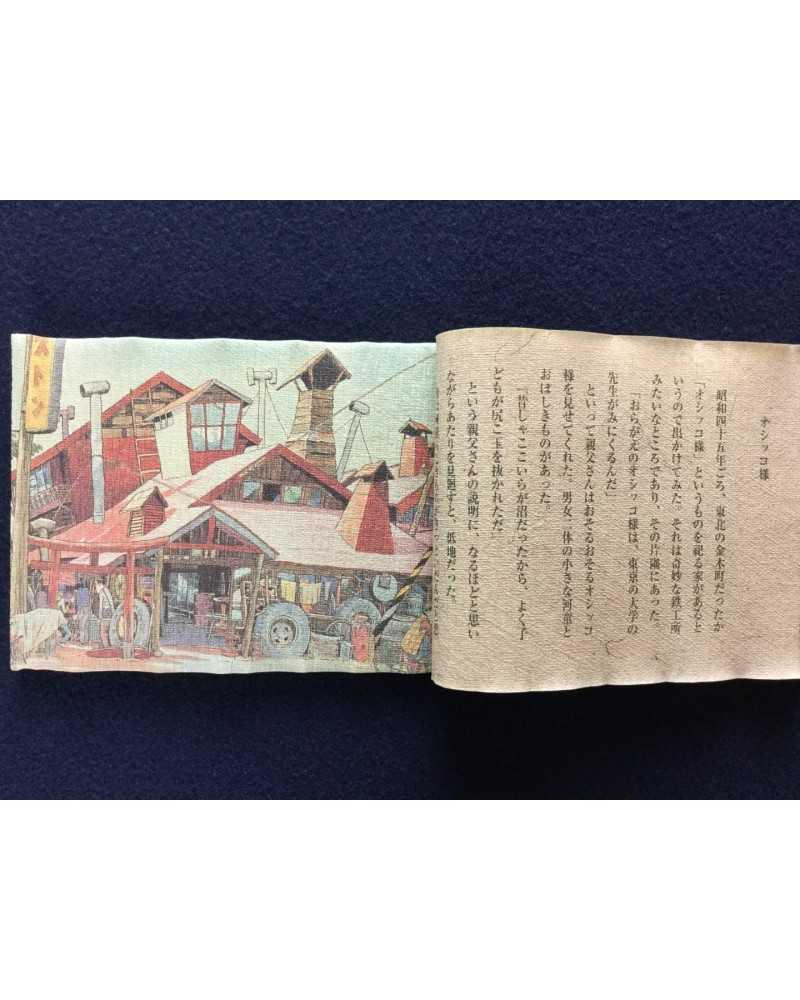 オシッコ様
昭和四十五年ごろ、東北の金木町だったか
「オシッコ様」というものを祀る家があると
いうので出かけてみた。それは奇妙な鉄工所
みたいなところであり、その片隅にあった。
「おらがえのオシッコ様は、東京の大学の
先生がみにくるんだ」
といって親父さんはおそるおそるオシッコ
様を見せてくれた。男女二体の小さな河童と
おぼしきものがあった。
「昔しゃここいらが沼だったから、よく子
どもが尻こ玉を抜かれただ」
という親父さんの説明に、なるほどと思い
ながらあたりを見廻すと、低地だった。
ストン